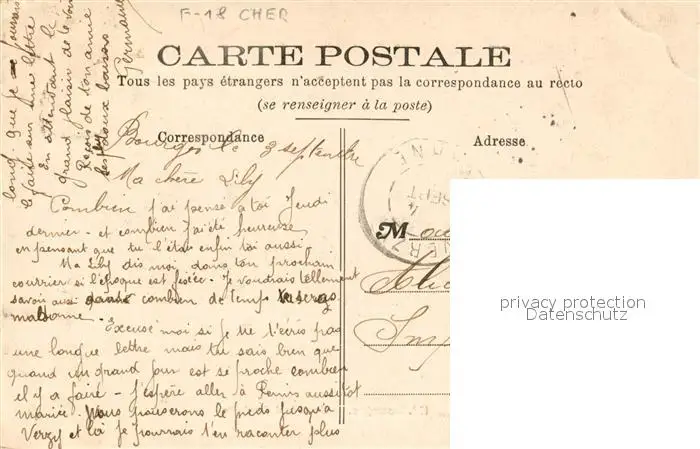 F-18 CHER
CARTE POSTALE
Tous les pays étrangers n'acceptent pas la correspondance au recto
(se renseigner à la poste)
Correspondance
Adresse
Bourges le 3 septembre
Ma chère Lily
Combien j'ai pensé a toi Jeudi
dernier - et combien j'ai été heureuse
en pensant que tu l'étais enfin toi aussi
Ma Lily dis moi dans ton prochain
courrier si l'époque est fixée - Je voudrais tellement
savoir aussi combien de temps tu seras
Excuse moi si je ne t'écris pas
une longue lettre mais tu sais bien que
quand un grand jour est si proche combien
il y a faire - J'espère aller à Reims aussitot
mariée. Nous pousserons le pieds jusqu'a
Verzy et là je pourrais t'en raconter plus
long que je
le faire sur une lettre
En attendant le
grand plaisir de te voir
Reçois de ton amie
les plus doux baisers
Germaine
M
SEPT
VERZ
privacy protection
Datenschutz